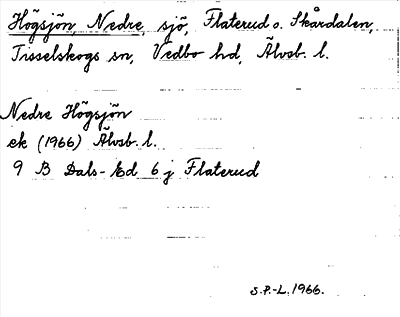 Högsjön, Nedre, sjö, Flaterud o. Skårdalen,
Tisselskogs sn, Vedbo hd, Älvsb. l.
Nedre Högsjön
ek (1966) Älvsb. l.
9 B Dals-Ed 6 j Flaterud
S.P.-L. 1966.